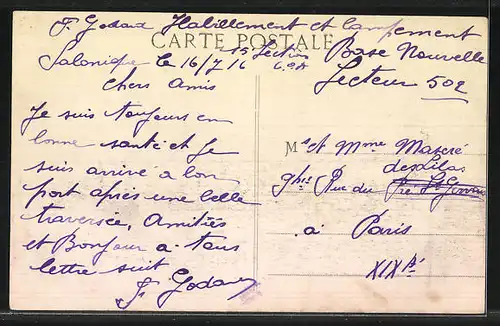 F. Godard Habillement et Campement
CARTE POSTALE
15 Section Base Nouvelle
Salonique le 16/7/16 C.O.A Secteur 502
Chers Amis
Je suis toujours en
bonne santé et Je
suis arrivé à bon
port après une belle
traversée, Amitiés
et Bonjour a tous
lettre suit
F. Godard
Mr et Mme Maseré
des Lilas
9 bis Rue du Pré St Gervais
à Paris
XIXè